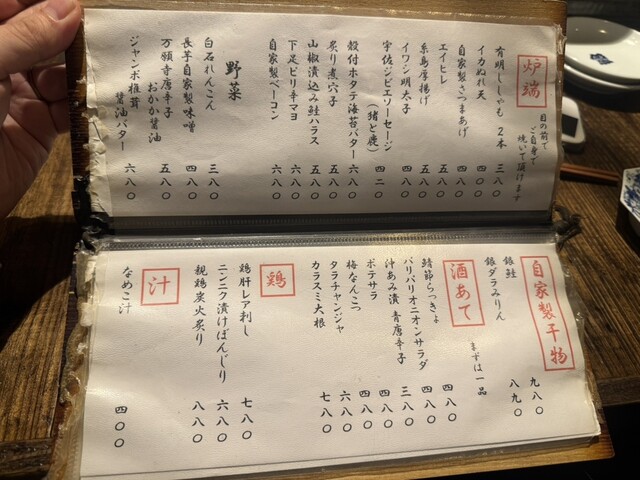 炉端
目の前で
ご自身で
焼いて頂けます
有明ししゃも 2本 三八〇
イカぬれ天 四八〇
自家製さつまあげ 四八〇
エイヒレ 五八〇
糸島厚揚げ 五八〇
イワシ明太子 四八〇
宇佐ジビエソーセージ
(猪と鹿) 四二〇
殻付ホタテ海苔バター 六八〇
炙り煮穴子 五八〇
山椒漬込み鮭ハラス 五八〇
下足ピリ辛マヨ 六八〇
自家製ベーコン 六八〇
野菜
白石れんこん 三八〇
長芋自家製味噌 四八〇
万願寺唐辛子
おかか醤油 五八〇
ジャンボ椎茸
醤油バター 六八〇
自家製干物
銀鮭 九八〇
銀ダラみりん 八九〇
酒あて
まずは一品
鯖節らっきょ 四八〇
バリバリオニオンサラダ 四八〇
沖あみ漬 青唐辛子 三八〇
ポテサラ 四八〇
梅なんこつ 四八〇
タラチャンジャ 六八〇
カラスミ大根 七八〇
鶏
鶏肝レア刺し 七八〇
ニンニク漬けぼんじり 六八〇
親鶏炭火炙り 八八〇
汁
なめこ汁 四〇〇